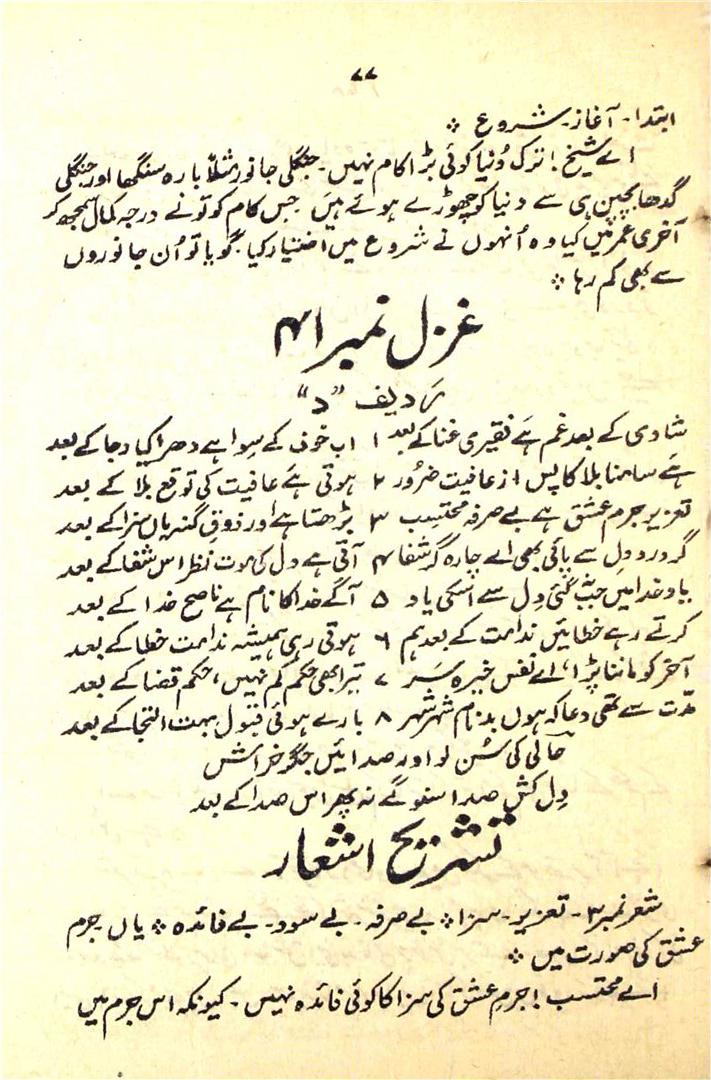 ۷۷
ابتدا۔ آغاز۔ شروع ؞
اے شیخ! ترک دُنیا کوئی بڑا کام نہیں۔ جنگلی جانور مثلاً بارہ سنگھا اور جنگلی
گدھا بچپن ہی سے دنیا کو چھوڑے ہوئے ہیں۔ جس کام کو تونے درجہ کمال سمجھ کر
آخری عمر میں کیا وہ اُنہوں نے شروع میں اختیار کیا۔ گویا تو اُن جانوروں
سے بھی کم رہا ؞
غزل نمبر ۴۱
ردیف "د"
شادی کے بعد غم ہے فقیری غنا کے بعد ۱ اب خوف کے سوا ہے دھرا کیا دجا کے بعد
ہے سامنا بلا کا پس از عافیت ضرور ۲ ہوتی ہے عافیت کی توقع بلا کے بعد
تعزیر جرم عشق ہے بے صرفہ محتسب ۳ بڑھتا ہے اور ذوقِ گنہ یاں سزا کے بعد
گر درد دل سے پائی بھی اے چارہ گر شفا ۴ آتی ہے دل کی موت نظر اس شفا کے بعد
یاد خدا میں جب گئی دِل سے اسکی یاد ۵ آگے خدا کا نام ہے ناصح خدا کے بعد
کرتے رہے خطائیں ندامت کے بعد ہم ۶ ہوتی رہی ہمیشہ ندامت خطا کے بعد
آخر کو ماننا پڑا، اے نفس خیرہ سَر ۷ تیرا بھی حکم کم نہیں، حکم قضا کے بعد
مدّت سے تھی دعا کہ ہوں بدنام شہر شہر ۸ بارے ہوئی قبول بہت التجا کے بعد
حالی کی سُن لو اور صدائیں جگر خراش
دِل کش صدا سنو گے نہ پھر اس صدا کے بعد
تشریح اشعار
شعر نمبر ۳۔ تعزیر۔ سزا ؞ بے صرفہ۔ بے سود۔ بے فائدہ ؞ یاں۔ جرم
عشق کی صورت میں ؞
اے محتسب! جرمِ عشق کی سزا کا کوئی فائدہ نہیں۔ کیونکہ اس جرم میں